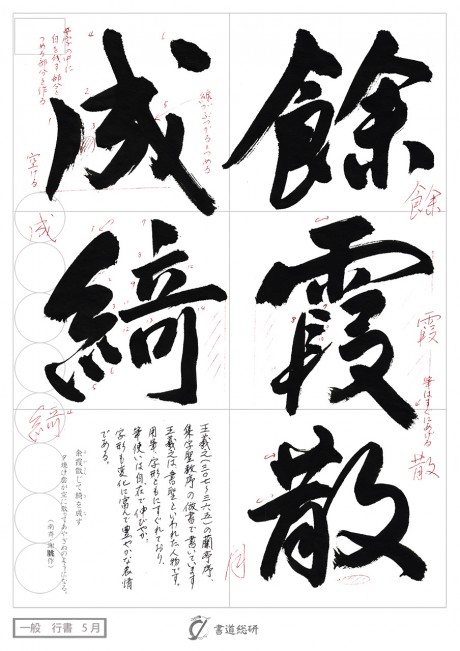 餘霞散
成綺
餘
霞
筆はすぐにあげる
散
月
空ける
成
綺
王羲之(三〇七〜三六五)の蘭亭序、
集字聖教序の倣書で書いています
王羲之は書聖といわれた人物です。
用筆、字形ともにすぐれており、
筆使いは自在で伸びやか、
字形も変化に富んで豊かな表情
である。
余霞散じて綺を成す
夕焼け雲が空に散ってあやぎぬのようになる。
一般 行書 5月
書道総研